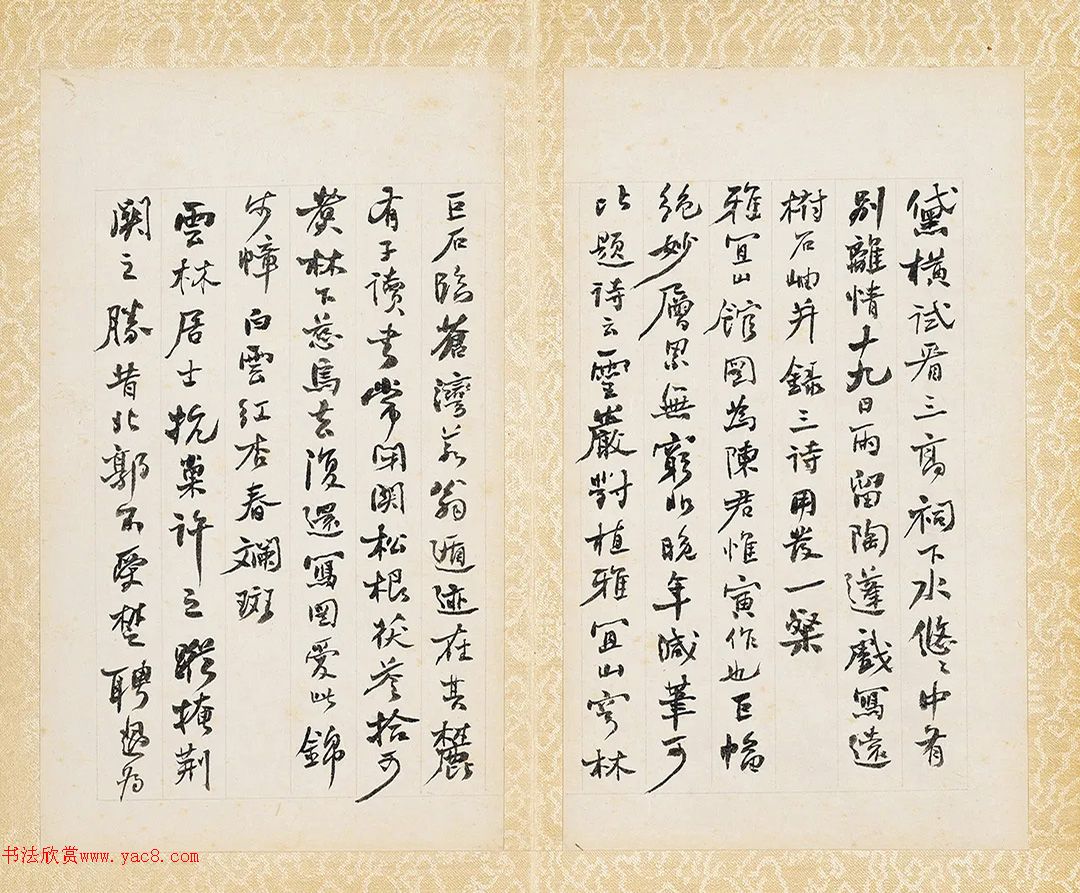 黛橫試看三高祠下水悠〻中有
別離情十九日雨留陶蓬戲寫遠
樹石岫并錄三詩用發一粲
雅宜山館圖為陳君惟寅作也巨幅
絕妙層累無窮非晚年減筆可
比題詩云靈巖對植雅宜山穹林
巨石臨蒼灣若翁遁迹在其麓
有子讀書常閉關松根茯苓拾可
煮林下慈烏去復還寫圖愛此錦
步幛白雲紅杏春斕斑
雲林居士抗巢許之蹤掩荊
關之勝昔北郭不受楚聘過為
书法欣赏www.yac8.com